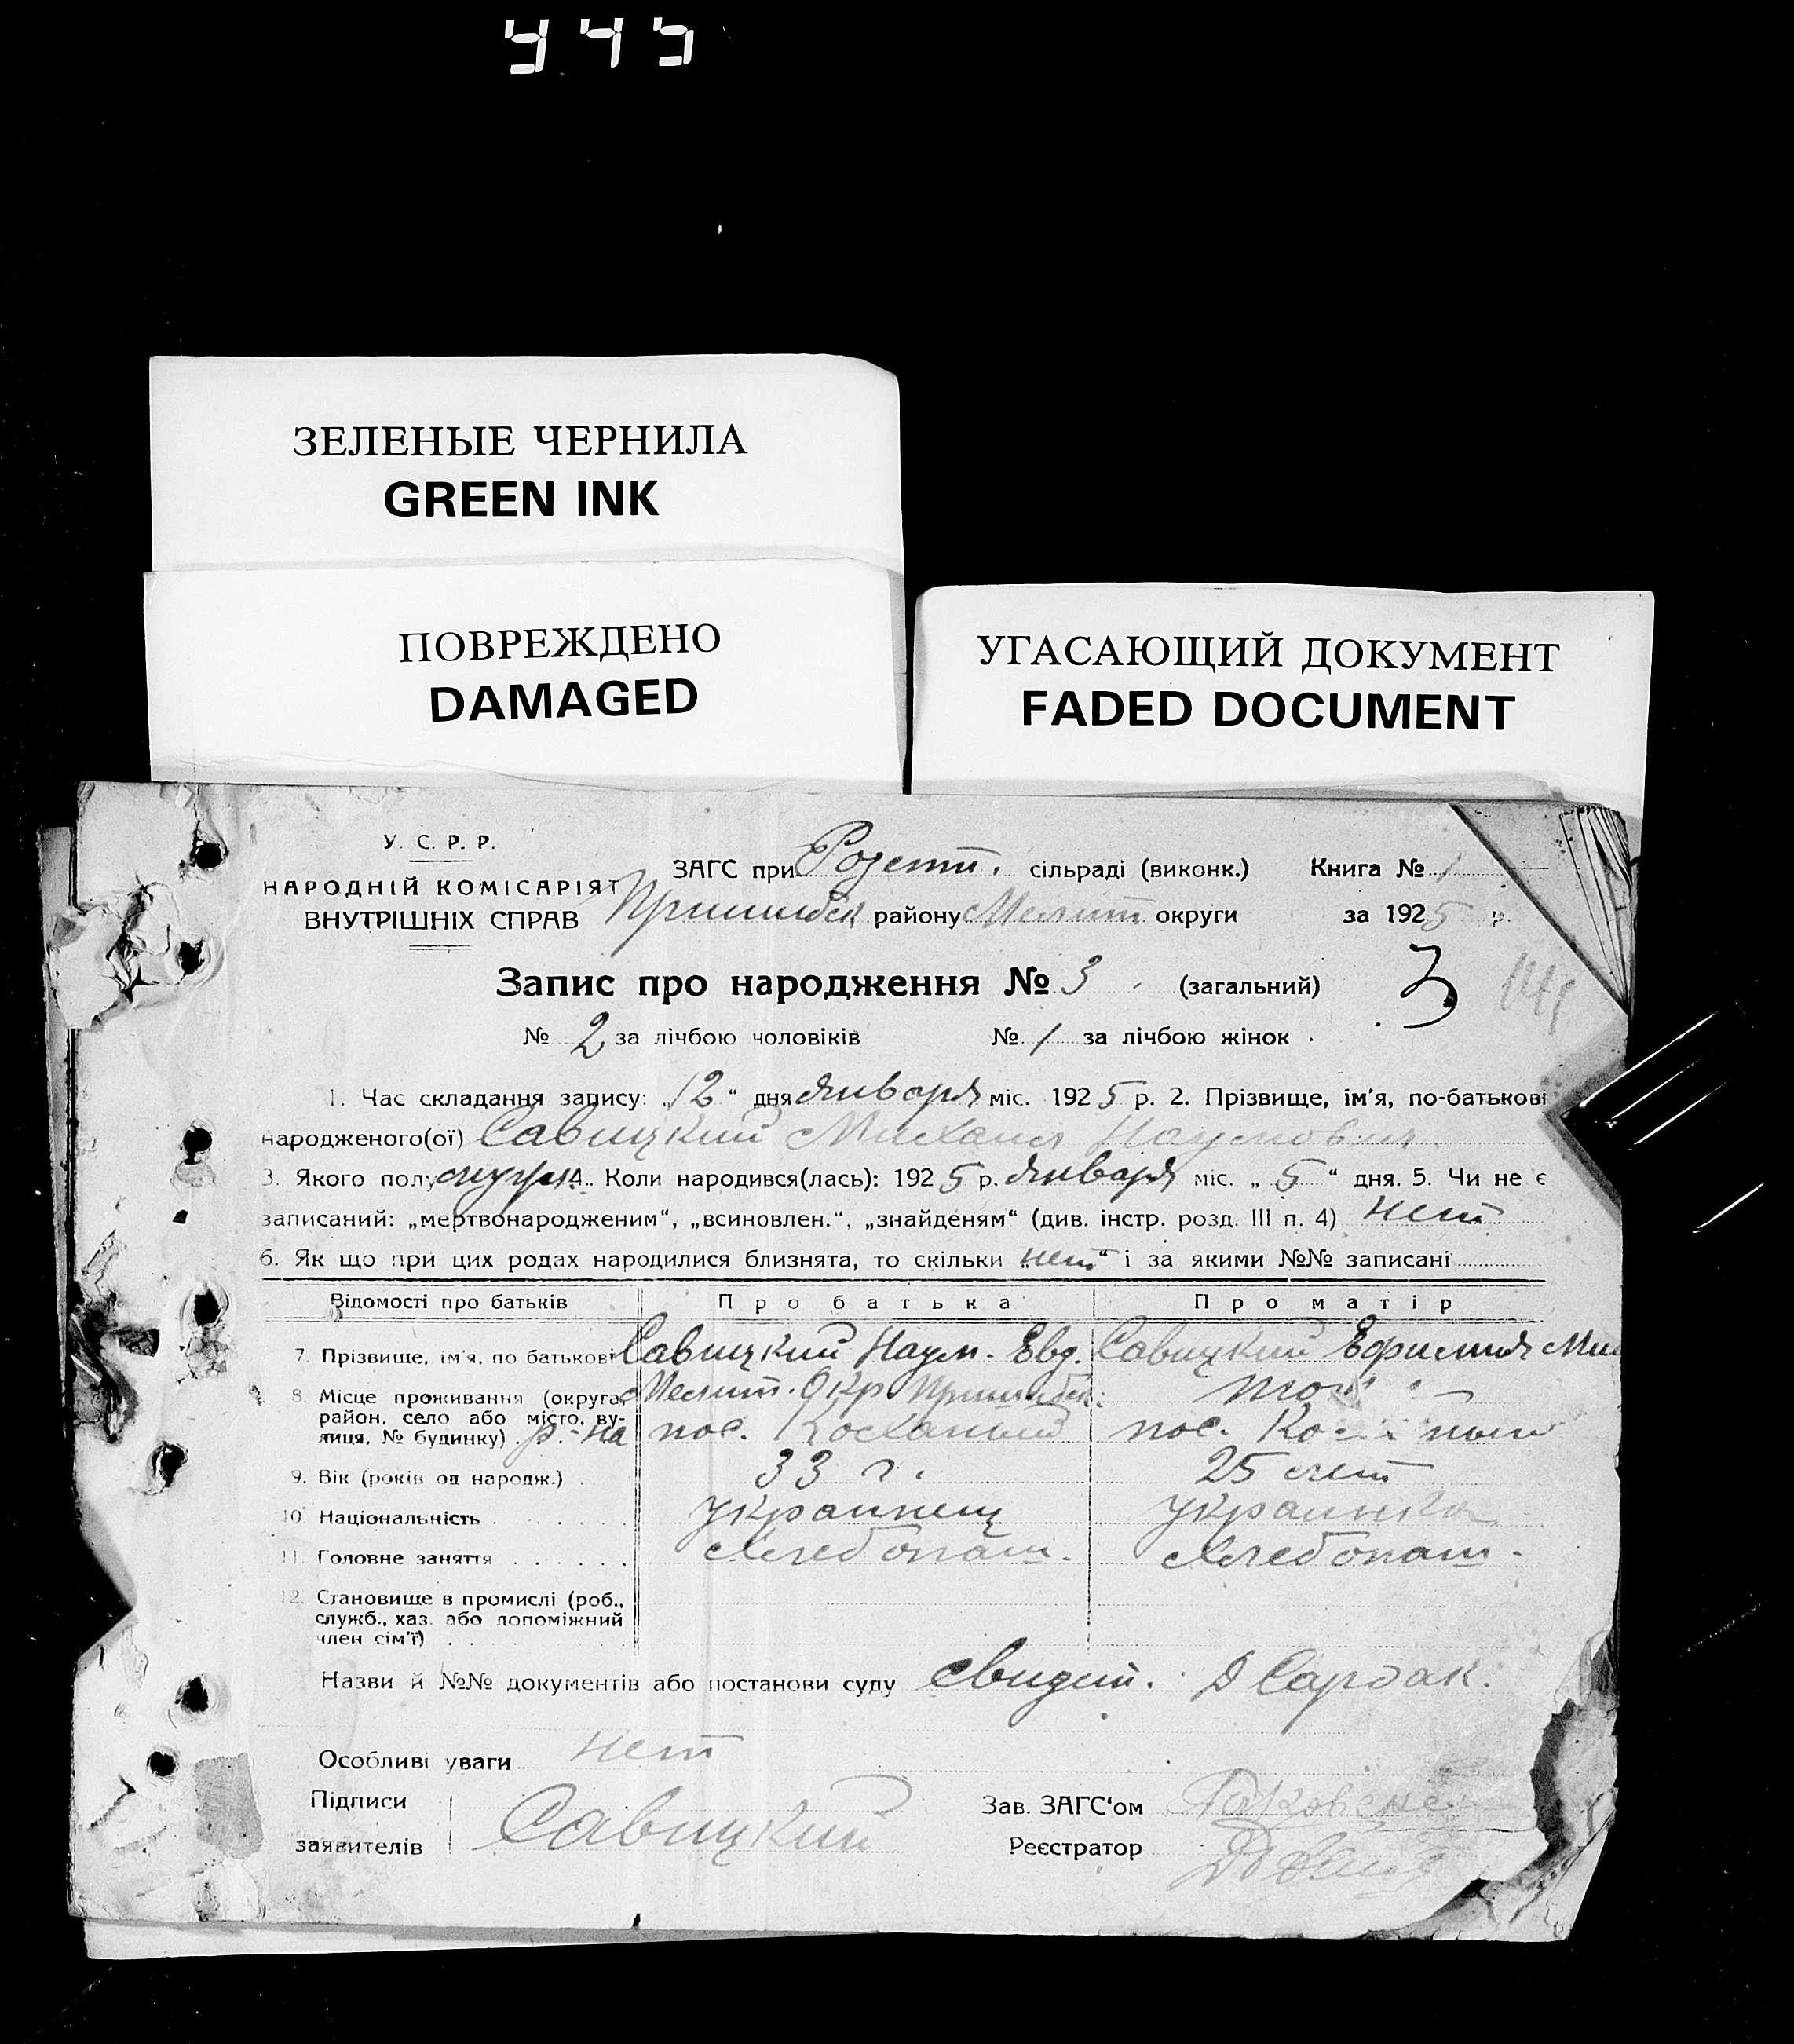 ЗЕЛЕНЫЕ ЧЕРНИЛА
GREEN INK
ПОВРЕЖДЕНО
DAMAGED
УГАСАЮЩИЙ ДОКУМЕНТ
FADED DOCUMENT
У. С. Р. Р.
НАРОДНІЙ КОМІСАРІЯТ
ВНУТРІШНІХ СПРАВ
ЗАГС при Розент. сільраді (виконк.) Книга № 1
Пришибск району Мелит округи за 1925 р.
Запис про народження № 3 (загальний) 3
№ 2 за лічбою чоловіків № 1 за лічбою жінок
1. Час складання запису: „12“ дня января міс. 1925 р. 2. Прізвище, ім'я, по-батькові
народженого(ої) Савицкий Михаил Наумович
3. Якого полу муж. 4. Коли народився(лась): 1925 р. января міс. „5“ дня. 5. Чи не є
записаний: „мертвонародженим“, „всиновлен.“, „знайденям“ (див. інстр. розд. III п. 4) нет
6. Як що при цих родах народилися близнята, то скільки „нет“ і за якими №№ записані
Відомості про батьків Про батька Про матір
7. Прізвище, ім'я, по батькові Савицкий Наум. Евд. Савицкий Ефимия
8. Місце проживання (округа, Мелит. Окр Пришибск.
район, село або місто, ву-
лиця, № будинку) р-на пос. пос.
9. Вік (років од народж.) 33 г. 25 лет
10. Національність украинец украинка
11. Головне заняття Хлебопаш. Хлебопаш.
12. Становище в промислі (роб.,
служб., хаз. або допоміжний
член сім'ї)
Назви й №№ документів або постанови суду свидит. Д Сардак.
Особливі уваги нет
Підписи
заявителів Савицкий
Зав. ЗАГС'ом
Реєстратор